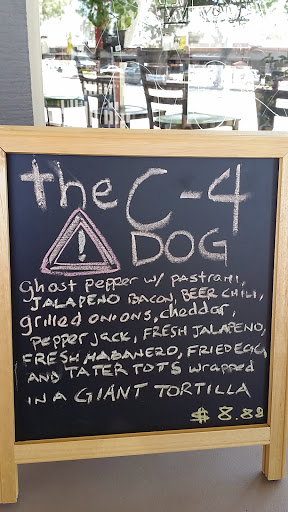 the C-4
! DOG
Ghost pepper w/ pastrami,
JALAPENO BACON, BEER CHILI,
grilled onions, cheddar,
pepper jack, FRESH JALAPENO,
FRESH HABANERO, FRIED EGG
AND TATER TOTS wrapped
IN A GIANT TORTILLA
$ 8.88